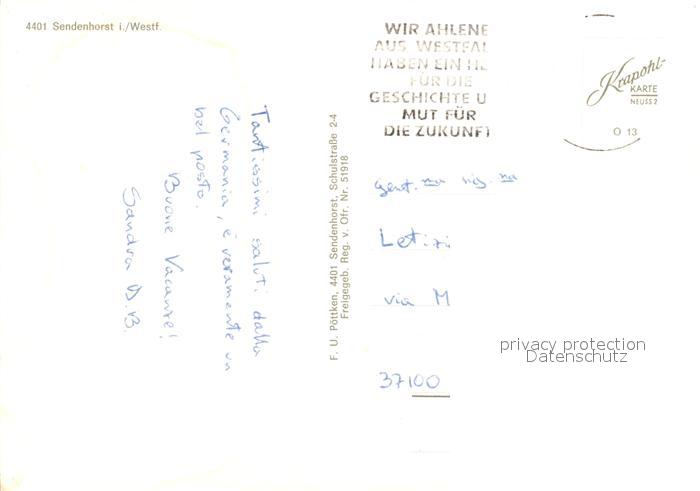 4401 Sendenhorst i./Westf.
WIR AHLENE
AUS WESTFAL
HABEN EIN HE
FÜR DIE
GESCHICHTE U
MUT FÜR
DIE ZUKUNFT
Krapohl-
KARTE
NEUSS 2
O 13
Tantissimi saluti dalla
Germania, è veramente un
bel posto.
Buone Vacanze!
Sandra D.B.
F. U. Pöttken, 4401 Sendenhorst, Schulstraße 2-4
Freigegeb. Reg. v. Ofr. Nr. 51918
gent.ma sig.na
Letizi
via M
37100
privacy protection
Datenschutz